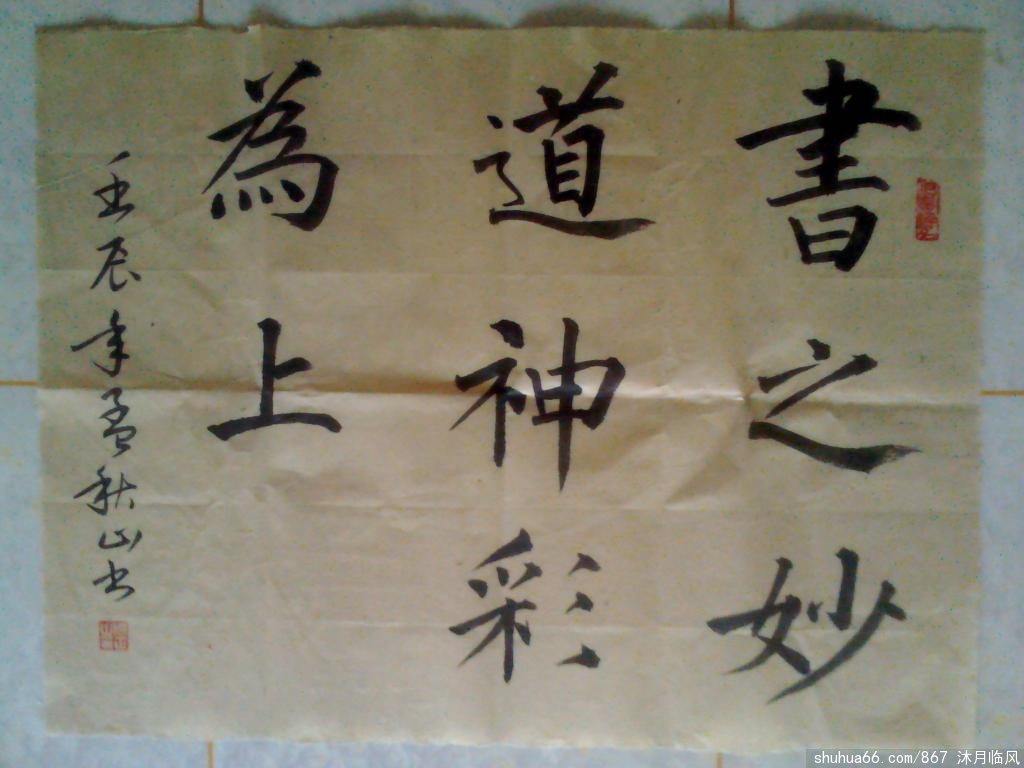 書之妙
道神彩
為上
壬辰年孟秋山书
shuhua66.com/867 沐月临风